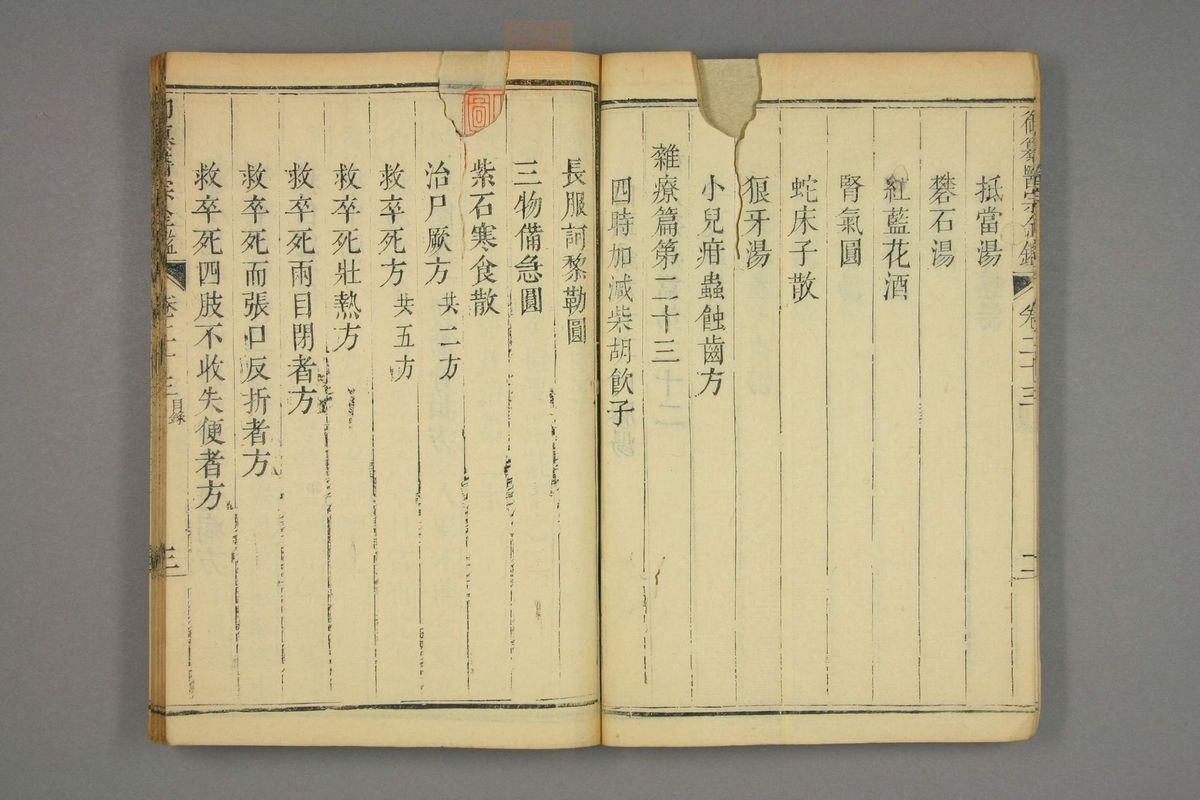 抵當湯
礬石湯
紅藍花酒
腎氣圓
蛇床子散
狼牙湯
小兒疳蟲蝕齒方
雜療篇第二十三
四時加減柴胡飲子
長服訶黎勒圓
三物備急圓
紫石寒食散
治尸厥方 共二方
救卒死方 共五方
救卒死壯熱方
救卒死兩目閉者方
救卒死而張口反折者方
救卒死四肢不收失便者方
目錄
三